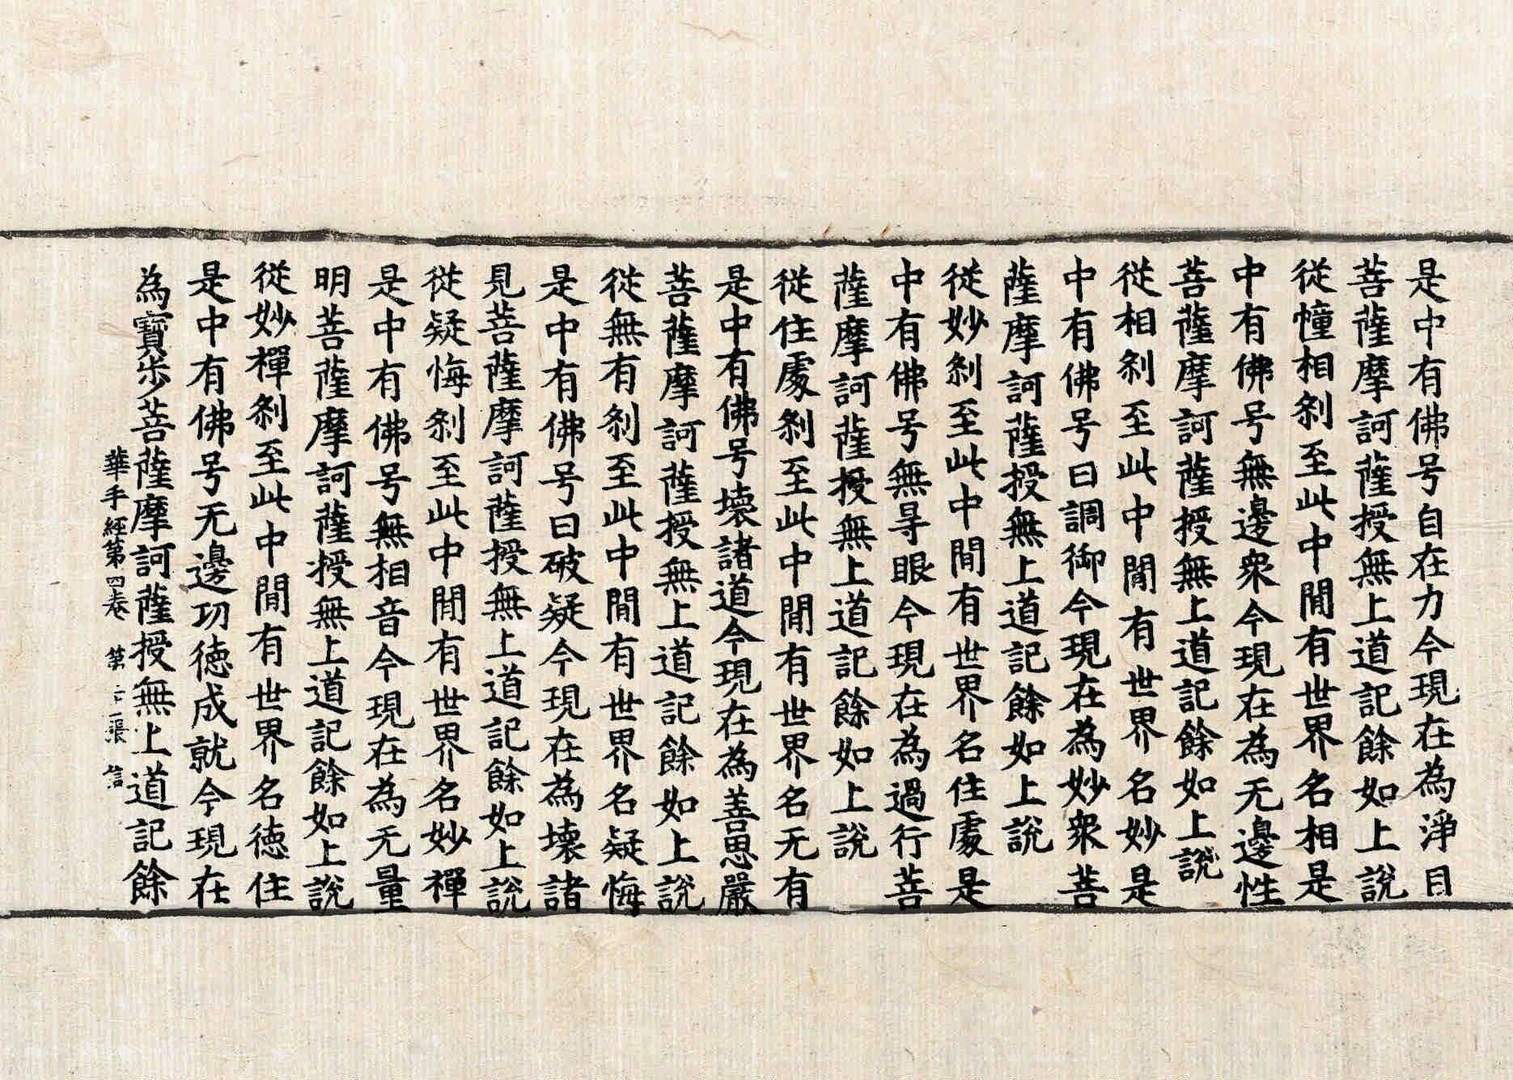 是中有佛号自在力今現在為淨目
菩薩摩訶薩授無上道記餘如上說
從憧相剎至此中閒有世界名相是
中有佛号無邊衆今現在為无邊性
菩薩摩訶薩授無上道記餘如上說
從相剎至此中閒有世界名妙是
中有佛号曰調御今現在為妙衆菩
薩摩訶薩授無上道記餘如上說
從妙剎至此中閒有世界名住處是
中有佛号無㝵眼今現在為過行菩
薩摩訶薩授無上道記餘如上說
從住處剎至此中閒有世界名无有
是中有佛号壞諸道今現在為善思嚴
菩薩摩訶薩授無上道記餘如上說
從無有剎至此中閒有世界名疑悔
是中有佛号曰破疑今現在為壞諸
見菩薩摩訶薩授無上道記餘如上說
從疑悔剎至此中閒有世界名妙禪
是中有佛号無相音今現在為无量
明菩薩摩訶薩授無上道記餘如上說
從妙禪剎至此中閒有世界名德住
是中有佛号无邊功德成就今現在
為寶步菩薩摩訶薩授無上道記餘
華手經第四卷 第 張 信